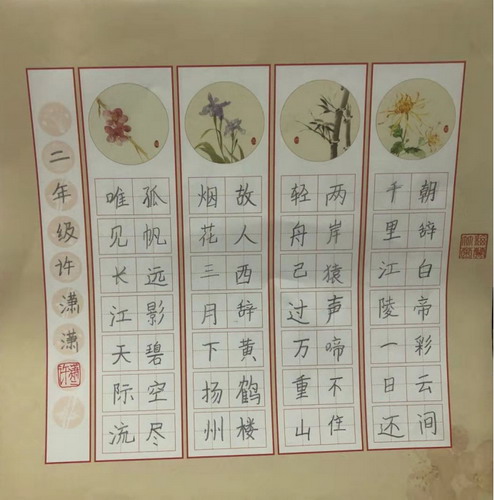 朝辞白帝彩云间
千里江陵一日还
两岸猿声啼不住
轻舟已过万重山
故人西辞黄鹤楼
烟花三月下扬州
孤帆远影碧空尽
唯见长江天际流
二年级许潇潇